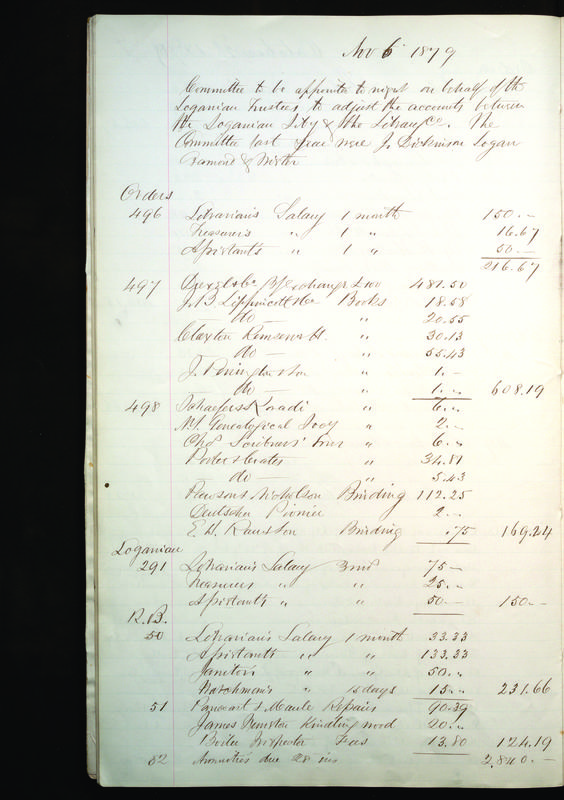 Nov 6 1879
Committee to be appointed to night on behalf of the
Loganian Trustees to adjust the accounts between
the Loganian Liby & the Library Co. The
Committee last year were J. Dickinson Logan
& Wister
Orders
496 Librarian's Salary 1 month 150.-
Treasurer's " 1 " 16.67
Assistant's " 1 " 50.-
216.67
497 Exchange £100 481.50
J.B Lippincott & Co Books 18.58
- do - " 20.55
Claxton Remsen & H. " 30.13
do - " 55.43
J. Penington & Son " 1.-
- do - " 1.- 608.19
498 Schaefer & Koradi " 6.-
N.Y. Genealogical Socy " 2.-
Chas Scribner's Sons " 6.-
Porter & Coates " 34.81
- do - " 5.43
Pawson & Nicholson Binding 112.25
Deutsche Pionier 2.-
E. W. Binding .75 169.24
Loganian
291 Librarian's Salary 3 mo 75-
Treasurers " " 25.-
Assistants " " 50.- 150.-
R.B.
50 Librarian's Salary 1 month 33.33
Assistants " " 133.33
Janitor's " " 50.-
Watchman's " days 15.- 231.66
51 Vancourt & Maule Repairs 90.39
James Kindling wood 20.-
Boiler Inspector Fees 13.80 124.19
52 Annuities due 28 ins 2,840.-